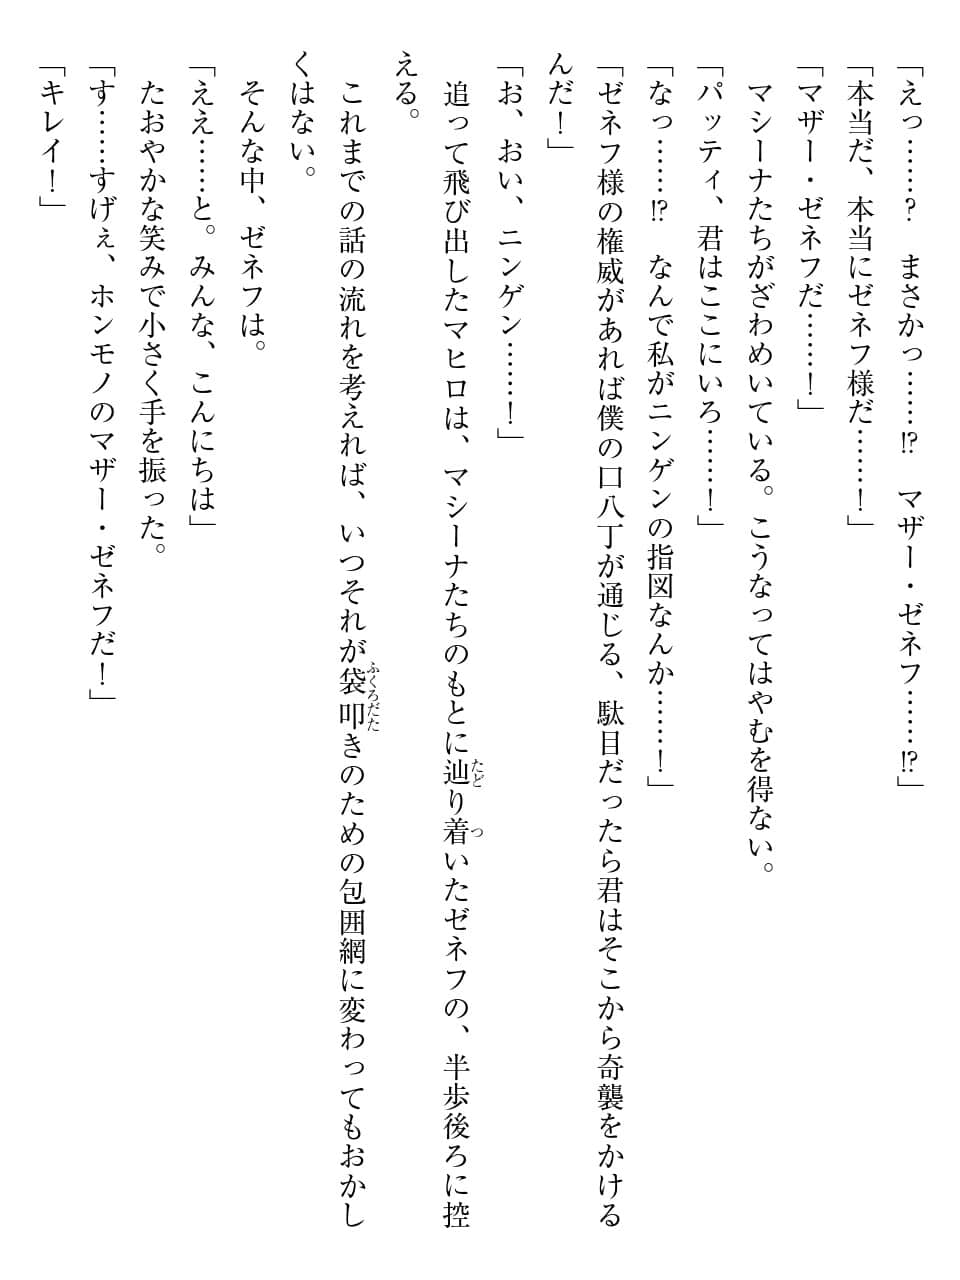 「えっ……？　まさかっ……⁉　マザー・ゼネフ……⁉」
「本当だ、本当にゼネフ様だ……！」
「マザー・ゼネフだ……！」
　マシーナたちがざわめいている。こうなってはやむを得ない。
「パッティ、君はここにいろ……！」
「なっ……⁉　なんで私がニンゲンの指図なんか……！」
「ゼネフ様の権威があれば僕の口八丁が通じる、駄目だったら君はそこから奇襲をかける
んだ！」
「お、おい、ニンゲン……！」
　追って飛び出したマヒロは、マシーナたちのもとに辿り着いたゼネフの、半歩後ろに控
える。
　これまでの話の流れを考えれば、いつそれが袋叩きのための包囲網に変わってもおかし
くはない。
　そんな中、ゼネフは。
「ええ……と。みんな、こんにちは」
　たおやかな笑みで小さく手を振った。
「す……すげぇ、ホンモノのマザー・ゼネフだ！」
「キレイ！」